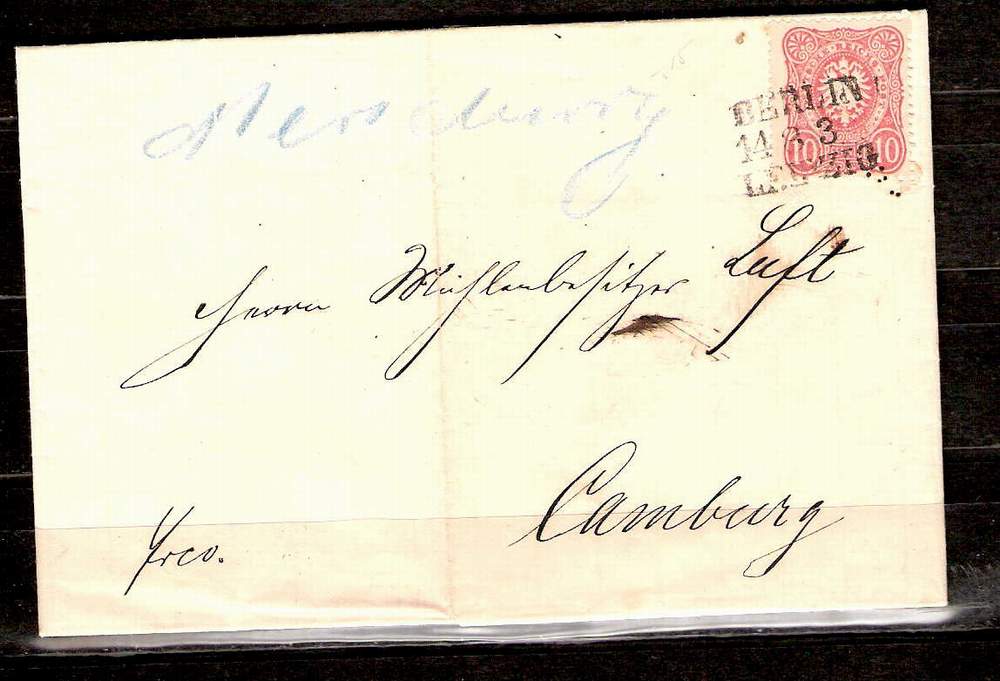 DEUTSCHE REICHS-POST
10 10
BERLIN
14 3 3
LEIPZIG.
Herrn Mühlenbesitzer Luft
Camburg
frco.